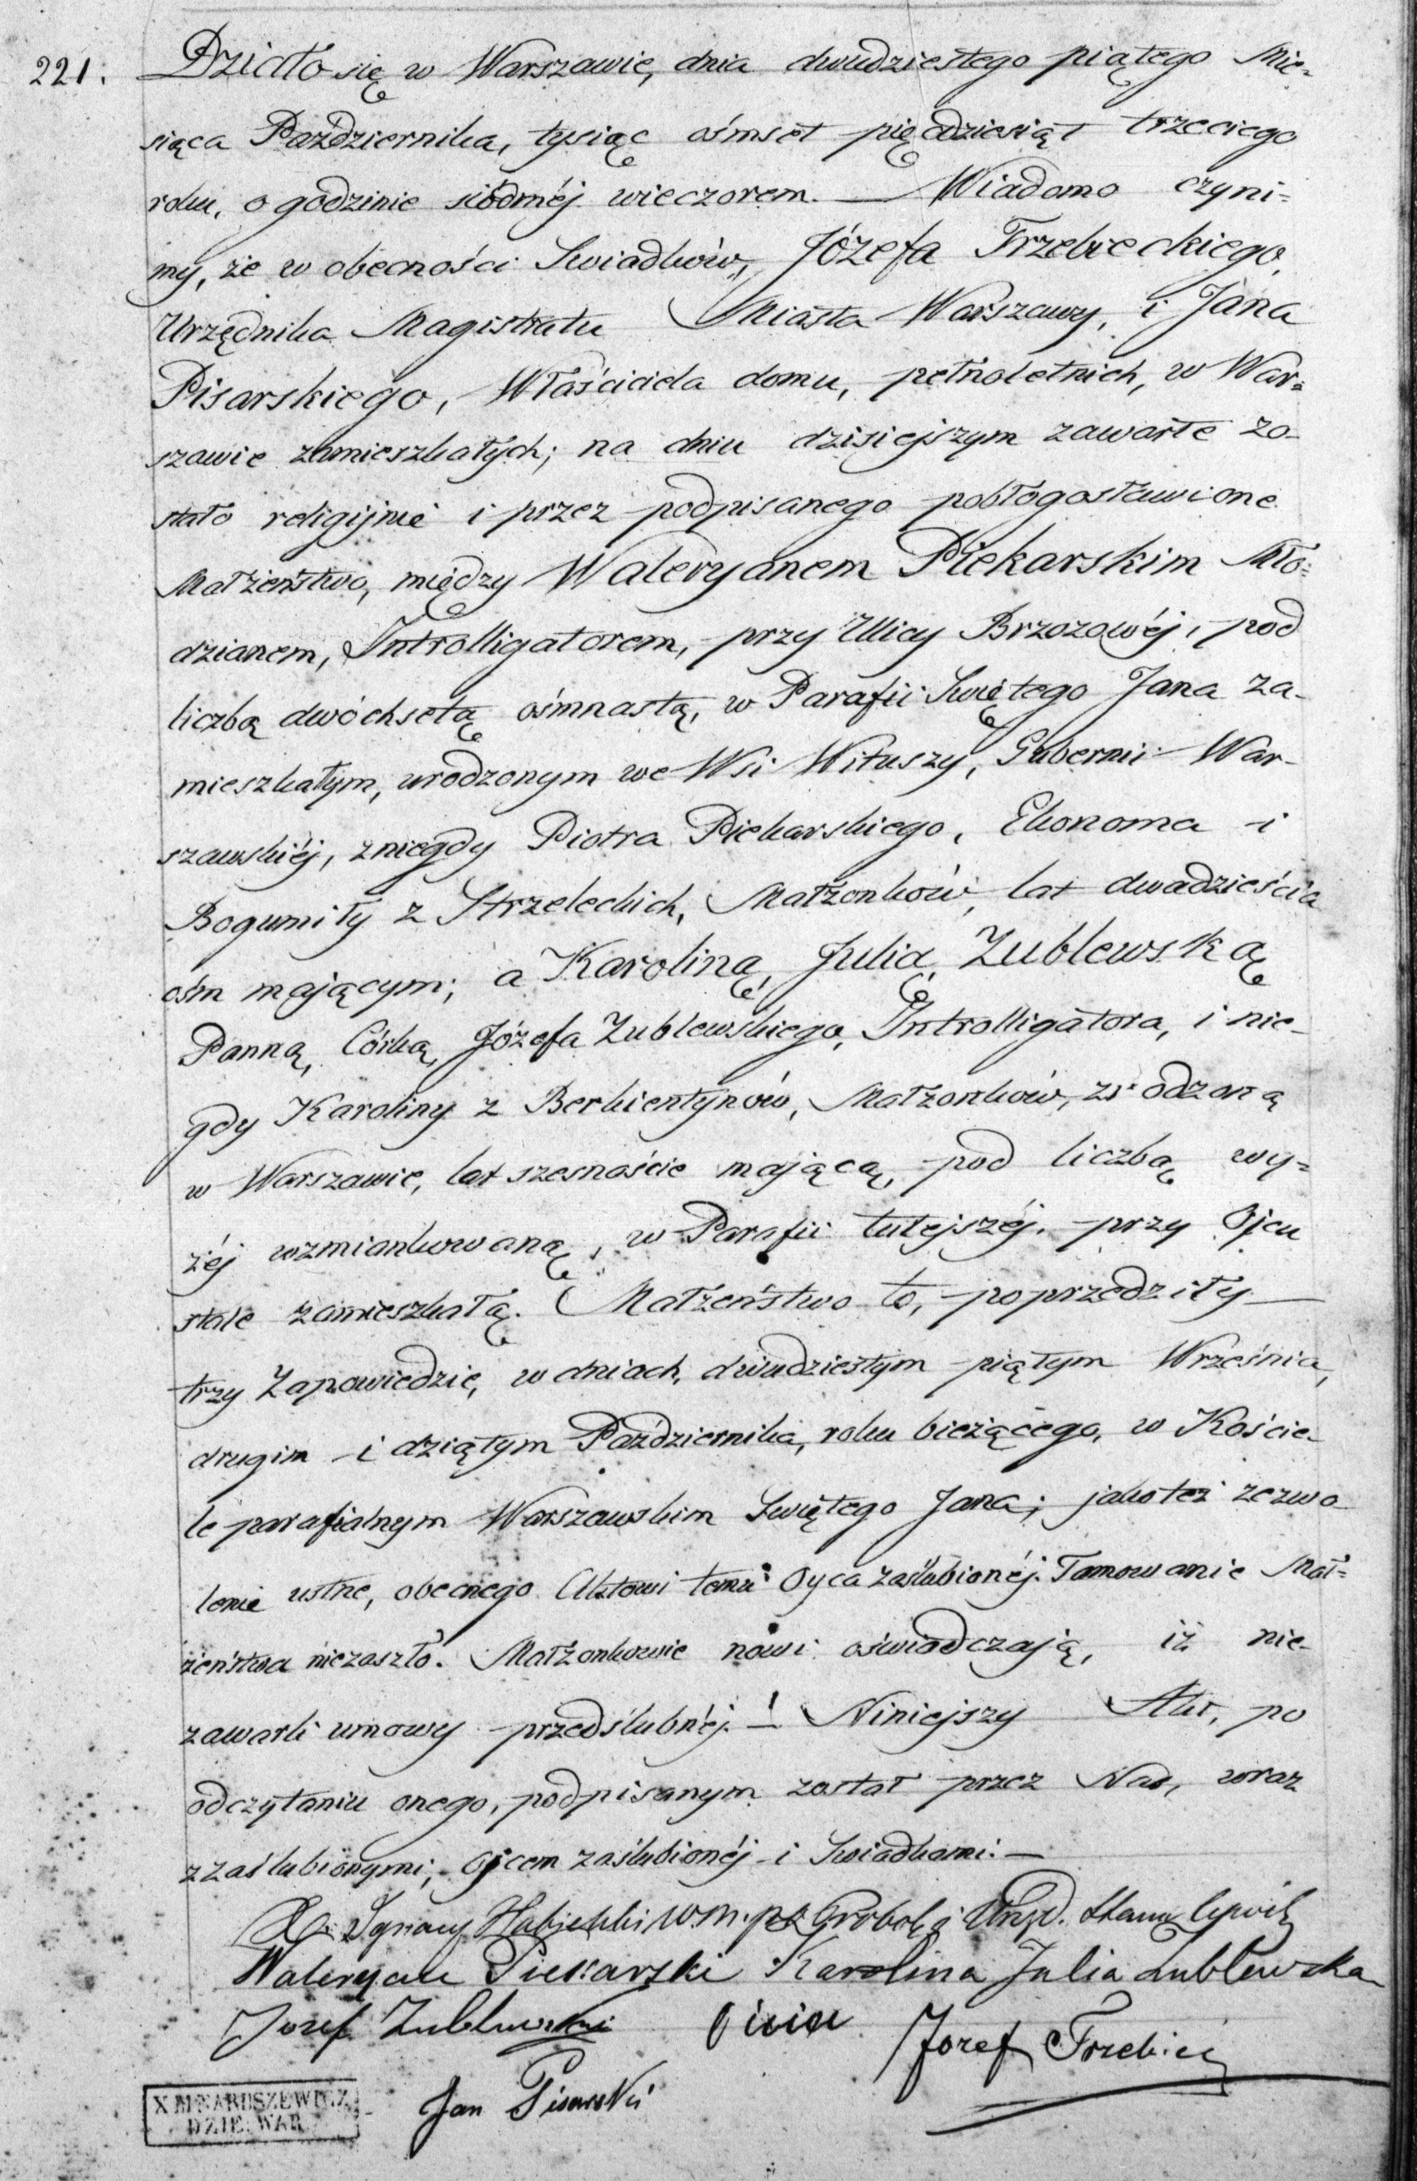 221. Działo się w Warszawie, dnia dwudziestego piątego Mie-
siąca Października, tysiąc ośmset pięćdziesiąt trzeciego
roku, o godzinie siódméj wieczorem. — Wiadomo czyni-
my, że w obecności Swiadków, Józefa Trzebieckiego,
Urzędnika Magistratu Miasta Warszawy, i Jana
Pisarskiego, Właściciela domu, pełnoletnich, w War-
szawie zamieszkałych; na dniu dzisiejszym zawarte zo-
stało religijnie i przez podpisanego pobłogosławione
Małżeństwo, między Waleryanem Piekarskim Mło-
dzianem, Introlligatorem, przy Ulicy Brzozowéj, pod
liczbą dwóchsetą ośmnastą, w Parafii Swiętego Jana za-
mieszkałym, urodzonym we Wsi Wituszy, Gubernii War-
szawskiéj, z niegdy Piotra Piekarskiego, Ekonoma i
Bogumiły z Strzeleckich, Małżonków, lat dwadzieścia
ośm mającym; a Karoliną Julią Zublewską
Panną, Córką Józefa Zublewskiego, Introlligatora, i nie-
gdy Karoliny z Berkientynów, Małżonków, zrodzoną
w Warszawie, lat szesnaście mającą, pod liczbą wy-
żéj wzmiankowaną, w Parafii tutejszéj przy Ojcu
stale zamieszkałą. Małżeństwo to, poprzedziły —
trzy Zapowiedzie, w dniach, dwudziestym piątym Września,
drugim i dziątym Października, roku bieżącego, w Koście-
le parafialnym Warszawskim Swiętego Jana; jakoteż zezwo-
lenie ustne, obecnego Aktowi temu Oyca zaślubionéj. Tamowanie Mał-
żeństwa niezaszło. Małżonkowie nowi oświadczają, iż nie-
zawarli umowy przedślubnéj. — Niniejszy Akt, po
odczytaniu onego, podpisanym został przez Nas, wraz
z zaślubionymi, Ojcem zaślubionéj i Swiadkami. —
X. Ignacy W. M. Urzęd. Stanu Cywil
Waleryan Piekarski Karolina Julia Zublewska
Jozef Zublewski Jozef Trzebiec
Jan Pisarski
X M NARUSZEWICZ
DZIE. WAR